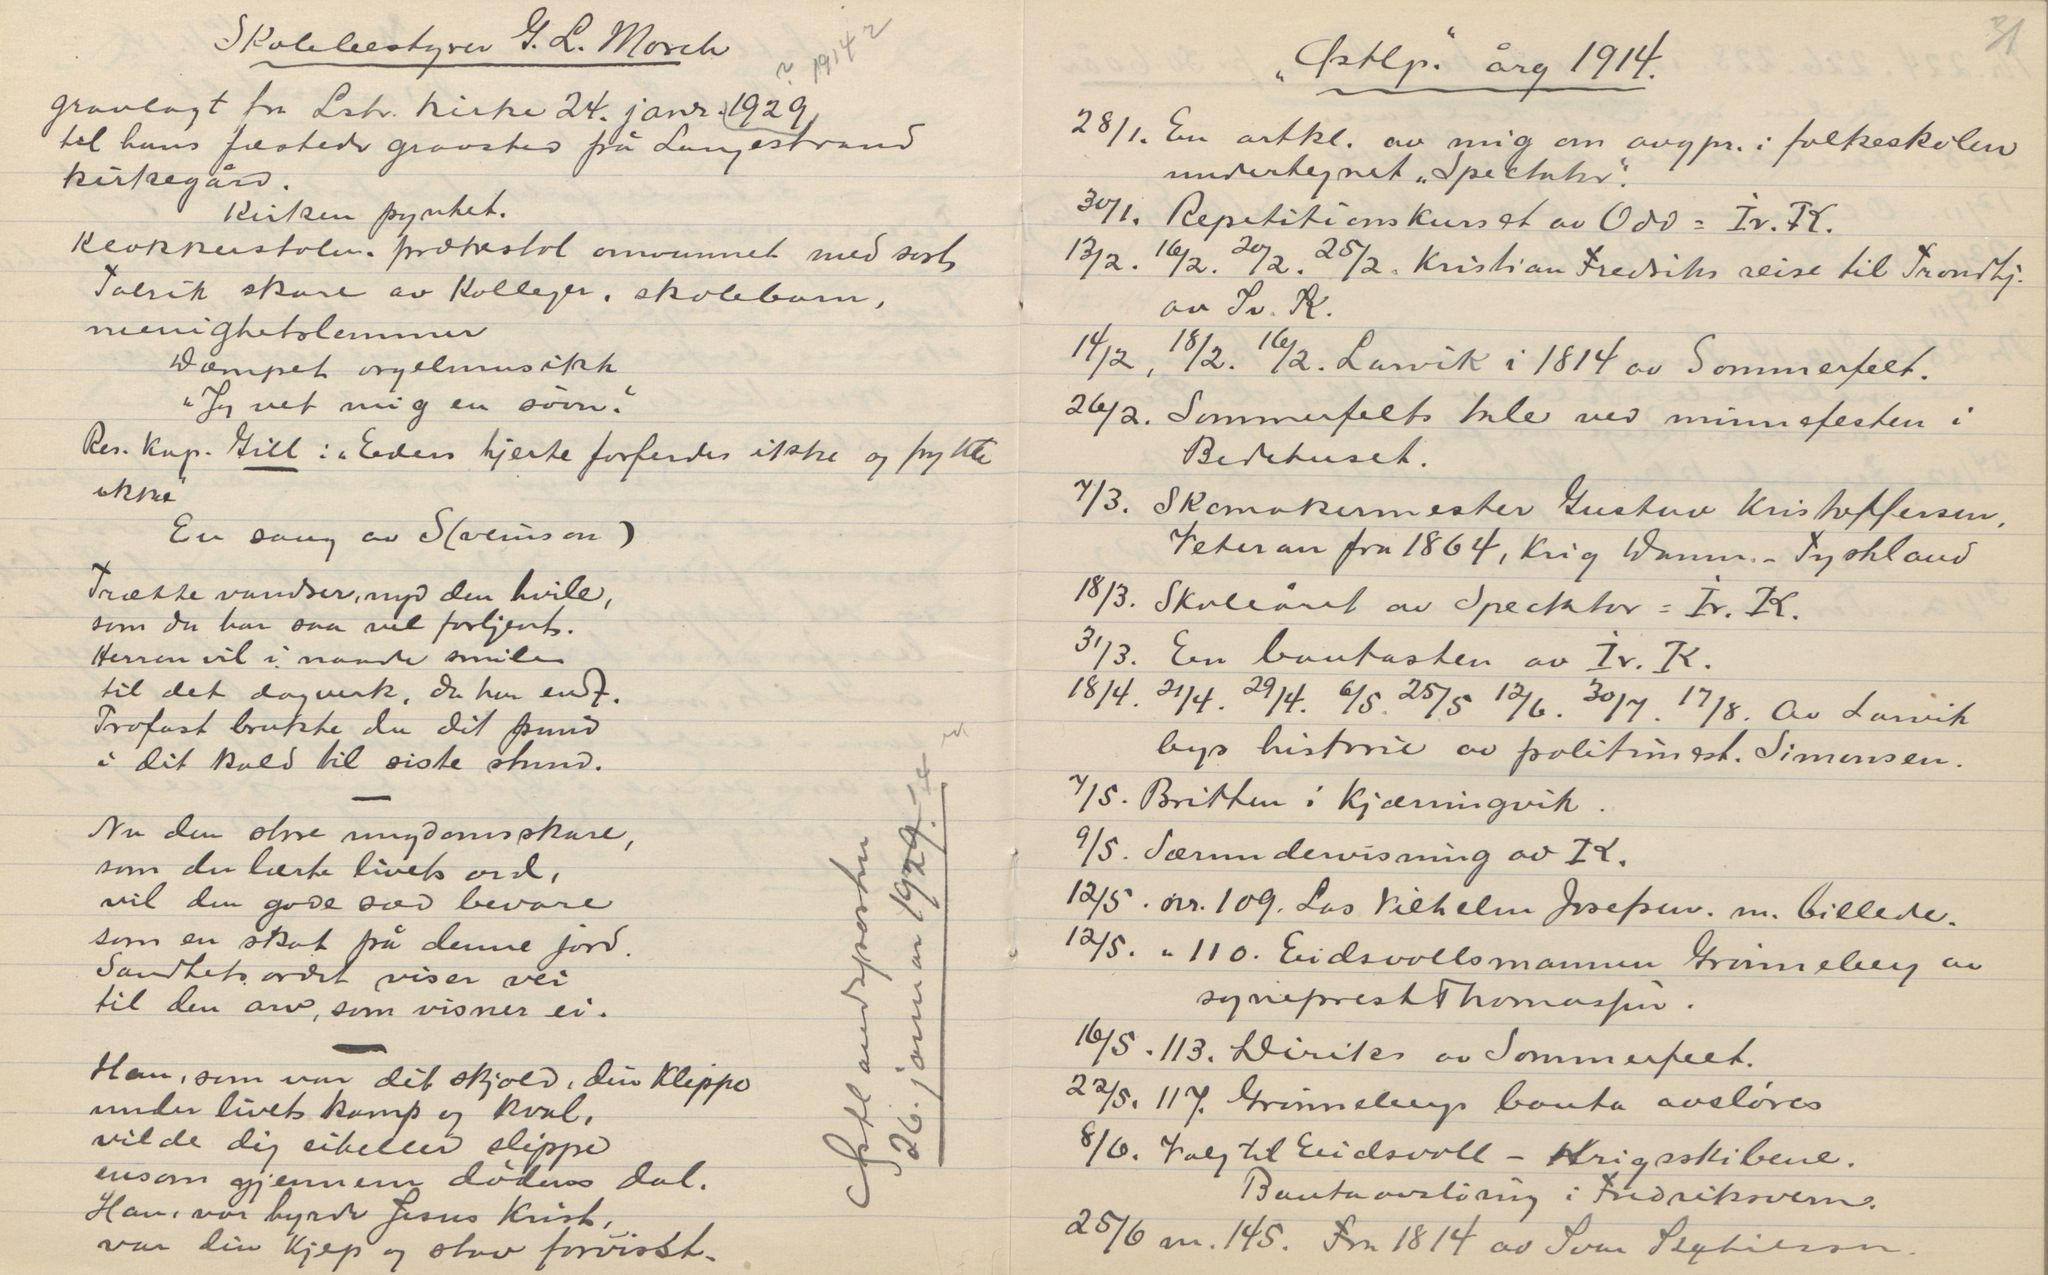 Skolebestyrer G. L. Mørch
? 1914 ?
gravlagt fra Lstr. kirke 24. janr. 1929
til hans fæstede gravsted på Langestrand
kirkegård.
Kirken pyntet.
Klokkerstolen. prækestol omvunnet med sort
Talrik skare av kolleger, skolebarn,
menighetslemmer
Dæmpet orgelmusikk
"Jeg vet mig en søvn".
Res. kap. Gill: "Eders hjerte forferdes ikke og frykte
ikke"
En sang av S(venison)
Trætte vandrer, nyd den hvile,
som du har saa vel fortjent.
Herren vil i naade smile
til det dagverk, du har endt.
Trofast brukte du dit pund
i dit kald til siste stund.
Nu den store ungdomsskare,
som du lærte livets ord,
vil den gode sæd bevare
som en skat på denne jord.
Sandhetsordet viser vei
til den arv, som visner ei.
Han, som var dit skjold, din klippe
under livets kamp og kval,
vilde dig eiheller slippe
ensom gjennem dødens dal.
Han, vor hyrde Jesus Krist,
var din kjep og stav forvisst.
Østlandsposten
26. januar 1929.
31
"Østlp." årg 1914.
28/1. En artkl. av mig om avgpr. i folkeskolen
undertegnet "Spectator".
30/1. Repetitionskurset av Odd = Iv. K.
13/2. 16/2. 20/2. 25/2. Kristian Fredriks reise til Trondhj.
av Iv. K.
14/2, 18/2. 16/2. Larvik i 1814 av Sommerfelt.
26/2. Sommerfelts tale ved minnefesten i
Bedehuset.
7/3. Skomakermester Gustav Kristoffersen,
Veteran fra 1864, krig Danm. - Tyskland
18/3. Skoleåret av Spectator = Iv. K.
31/3. En bautasten av Iv. K.
18/4. 21/4. 29/4. 6/5. 25/5 12/6. 30/7. 17/8. Av Larvik
bys historie av politimest. Simonsen.
7/5. Britten i Kjærringvik.
9/5. Særundervisning av IK.
12/5. nr. 109. Los Vilhelm Josefsen. m. billede.
12/5. " 110. Eidsvollsmannen Grønneberg av
sogneprest Thomassen.
16/5. 113. Diriks av Sommerfelt.
22/5. 117. Grønnebergs bauta avsløres
8/6. Valg til Eidsvoll - Krigsskibene.
Bautaavsløring i Fredriksvern.
25/6 nr. 145. Fra 1814 av Ivar